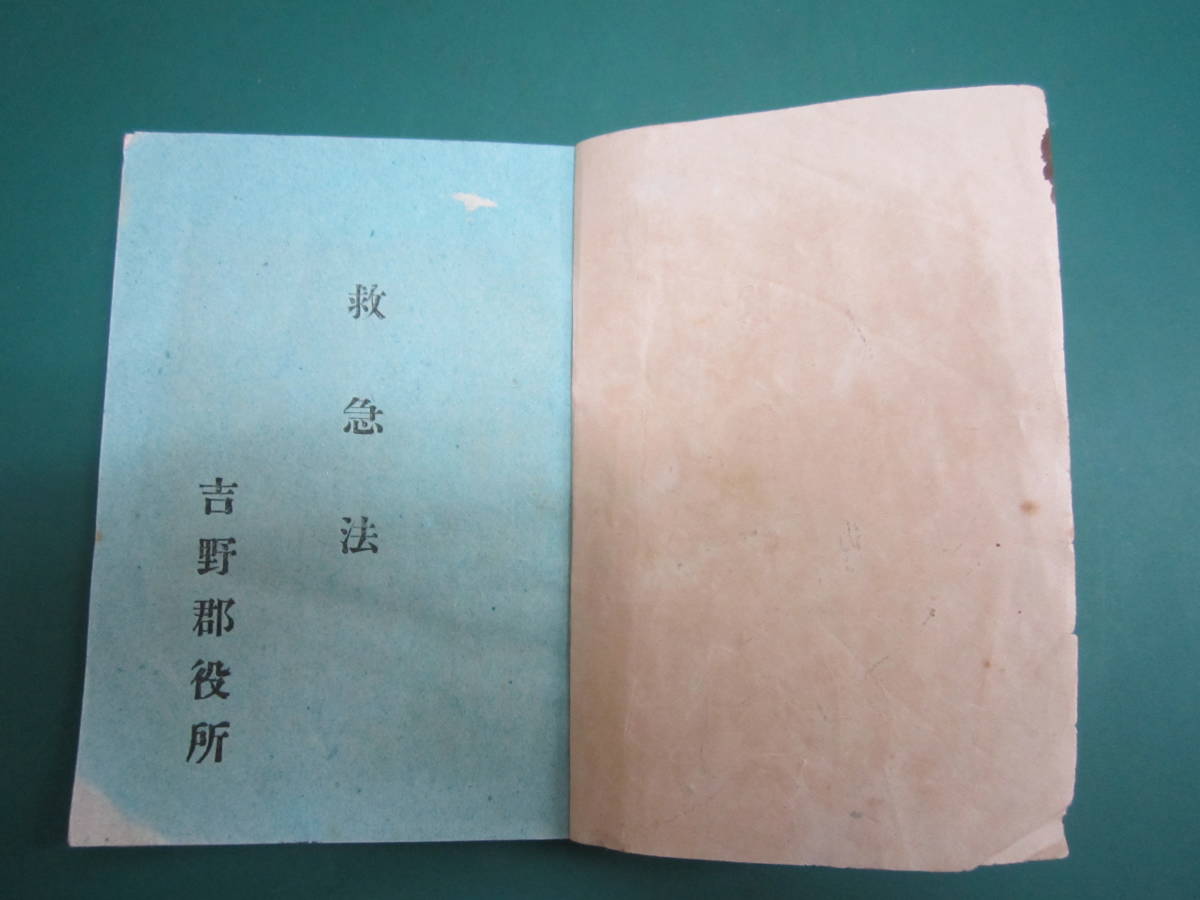 救急法
吉野郡役所